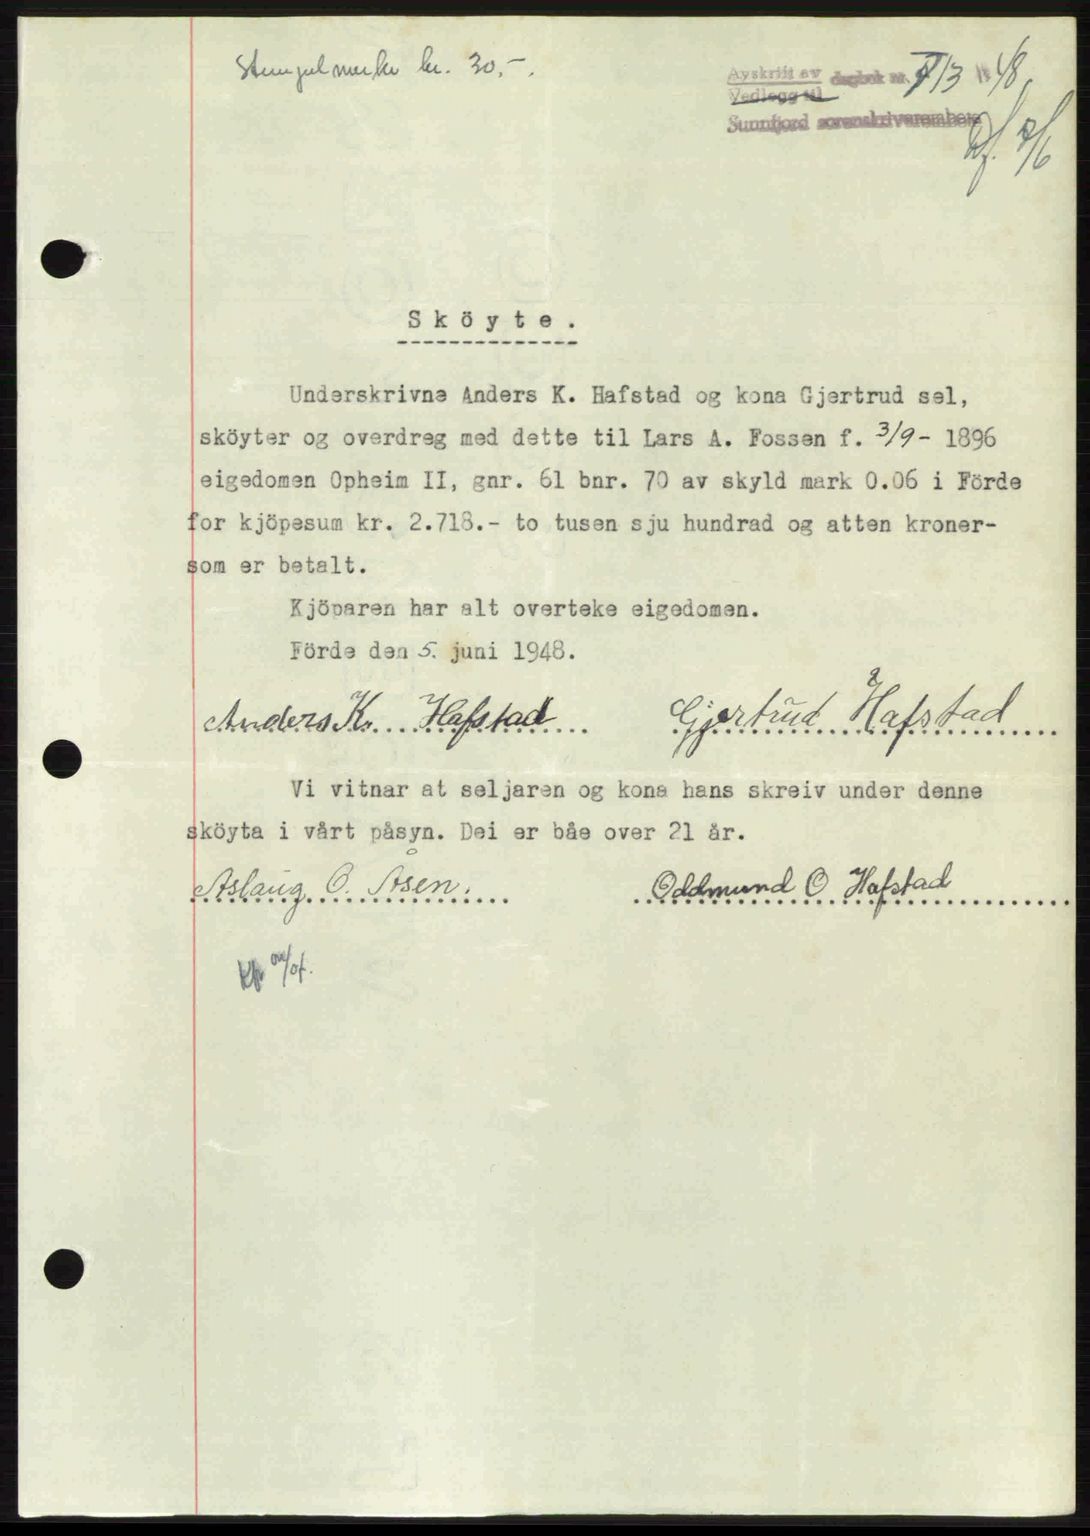 Stempelmerke kr. 30,-.
Avskrift av
Vedlegg til dagbok nr. 713 19 48
Sunnfjord sorenskriverembete
Sköyte.
Underskrivne Anders K. Hafstad og kona Gjertrud sel,
sköyter og overdreg med dette til Lars A. Fossen f. 3/9- 1896
eigedomen Opheim II, gnr. 61 bnr. 70 av skyld mark 0.06 i Förde
for kjöpesum kr. 2.718.- to tusen sju hundrad og atten kroner-
som er betalt.
Kjöparen har alt overteke eigedomen.
Förde den 5. juni 1948.
Anders K. Hafstad Gjertrud Hafstad
Vi vitnar at seljaren og kona hans skreiv under denne
sköyta i vårt påsyn. Dei er båe over 21 år.
Aslaug O. Åsen. Oddmund O Hafstad